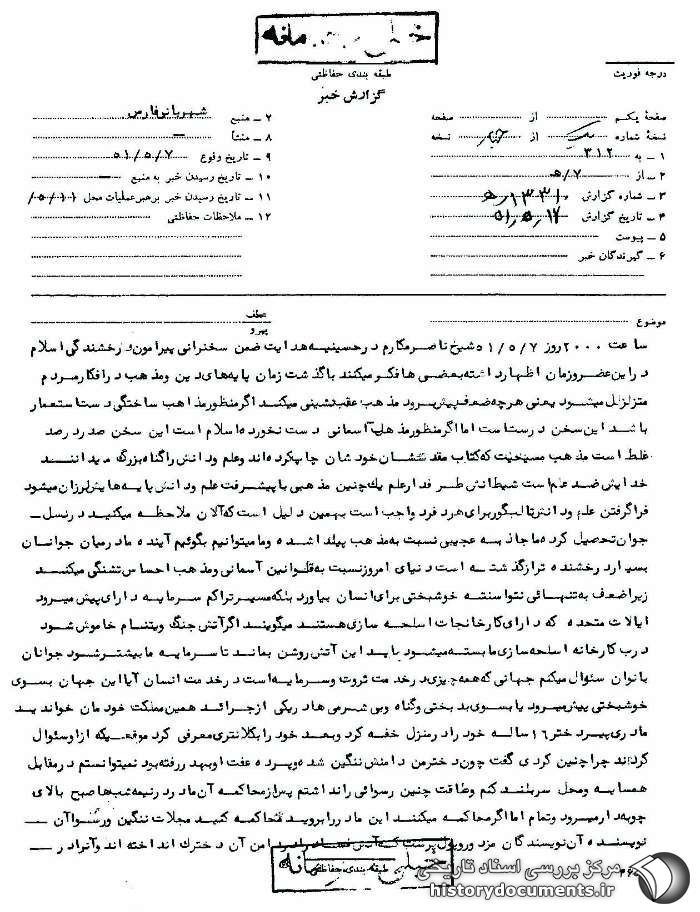 خیلی محرمانه
طبقه بندی حفاظتی
درجه فوریت
گزارش خبر
صفحهٔ یکم از صفحه
نسخهٔ شماره از نسخه
۱ ـ به ۳۱۲
۲ ـ از ۷/ھ
۳ ـ شماره گزارش
۴ ـ تاریخ گزارش
۵ ـ پیوست
۶ ـ گیرندگان خبر
۷ ـ منبع شهربانی فارس
۸ ـ منشأ ـ
۹ ـ تاریخ وقوع ۵۱/۵/۷
۱۰ ـ تاریخ رسیدن خبر به منبع ـ
۱۱ ـ تاریخ رسیدن خبر برهبر عملیات محل
۱۲ ـ ملاحظات حفاظتی
موضوع
عطف
پیرو
ساعت ۲۰۰۰ روز ۵۱/۵/۷ شیخ ناصر مکارم در حسینیه هدایت ضمن سخنرانی پیرامون رخشندگی اسلام
در این عصر و زمان اظهار داشته بعضی ها فکر میکنند با گذشت زمان پایه های دین و مذهب در افکار مردم
متزلزل میشود یعنی هر چه ضعف پیش برود مذهب عقب نشینی میکند اگر منظور مذاهب ساختگی دست استعمار
باشد این سخن درست است اما اگر منظور مذهب آسمانی دست نخورده اسلام است این سخن صد در صد
غلط است مذهب مسیحیت که کتاب مقدسشان خودشان چاپ کرده اند و علم و دانش را گناه بزرگ میدانند
خدایش ضد علم است شیطانش طرفدار علم یک چنین مذهبی با پیشرفت علم و دانش پایه هایش لرزان میشود
فرا گرفتن علم و دانش برای هر فرد واجب است بهمین دلیل است که الان ملاحظه میکنید در نسل ـ
جوان تحصیل کرده ما جاذبه عجیبی نسبت به مذهب پیدا شده و ما میتوانیم بگوئیم آینده ما در میان جوانان
بسیار درخشنده تر از گذشته است دنیای امروز نسبت به قوانین آسمانی و مذهب احساس تشنگی میکند
زیرا به تنهائی نتوانسته خوشبختی برای انسان بیاورد بلکه مسیر تراکم سرمایه دارای پیش میرود
ایالات متحده که دارای کارخانجات اسلحه سازی هستند میگویند اگر آتش جنگ ویتنام خاموش شود
درب کارخانه اسلحه سازی ما بسته میشود باید این آتش روشن بماند تا سرمایه ما بیشتر شود جوانان
بانوان سئوال میکنم جهانی که همه چیزی در خدمت ثروت و سرمایه است در خدمت انسان آیا این جهان بسوی
خوشبختی پیش میرود یا بسوی بدبختی و گناه و بی شرمی ها در یکی از جرائد همین مملکت خودمان خواندید
مادری پیر دختر ۱۶ ساله خود را در منزل خفه کرد و بعد خود را بکلانتری معرفی کرد موقعیکه از او سئوال
کرده اند چرا چنین کردی گفت چون دختر من دامنش ننگین شده و پرده عفت او به در رفته بود نمیتوانستم در مقابل
همسایه و محل سر بلند کنم و طاقت چنین رسوائی را نداشتم پس از محاکمه آن مادر در نیمه شبها صبح بالای
چوبه دار میرود و تمام اما اگر محاکمه میکنند این مادر را بروید محاکمه کنید مجلات ننگین و رسوا آن ـ
نویسنده آن نویسندگان مزدور و پول پرست که آتش دامن آن دخترک انداخته اند و آنرا در ـ
خیلی محرمانه
طبقه بندی حفاظتی
مرکز بررسی اسناد تاریخی
historydocuments.ir